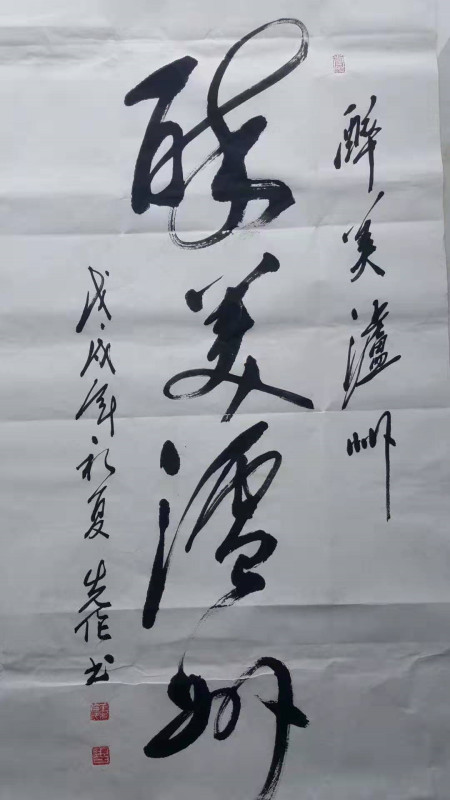 醉美瀘州
醉美瀘州
戊戌年初夏先作书